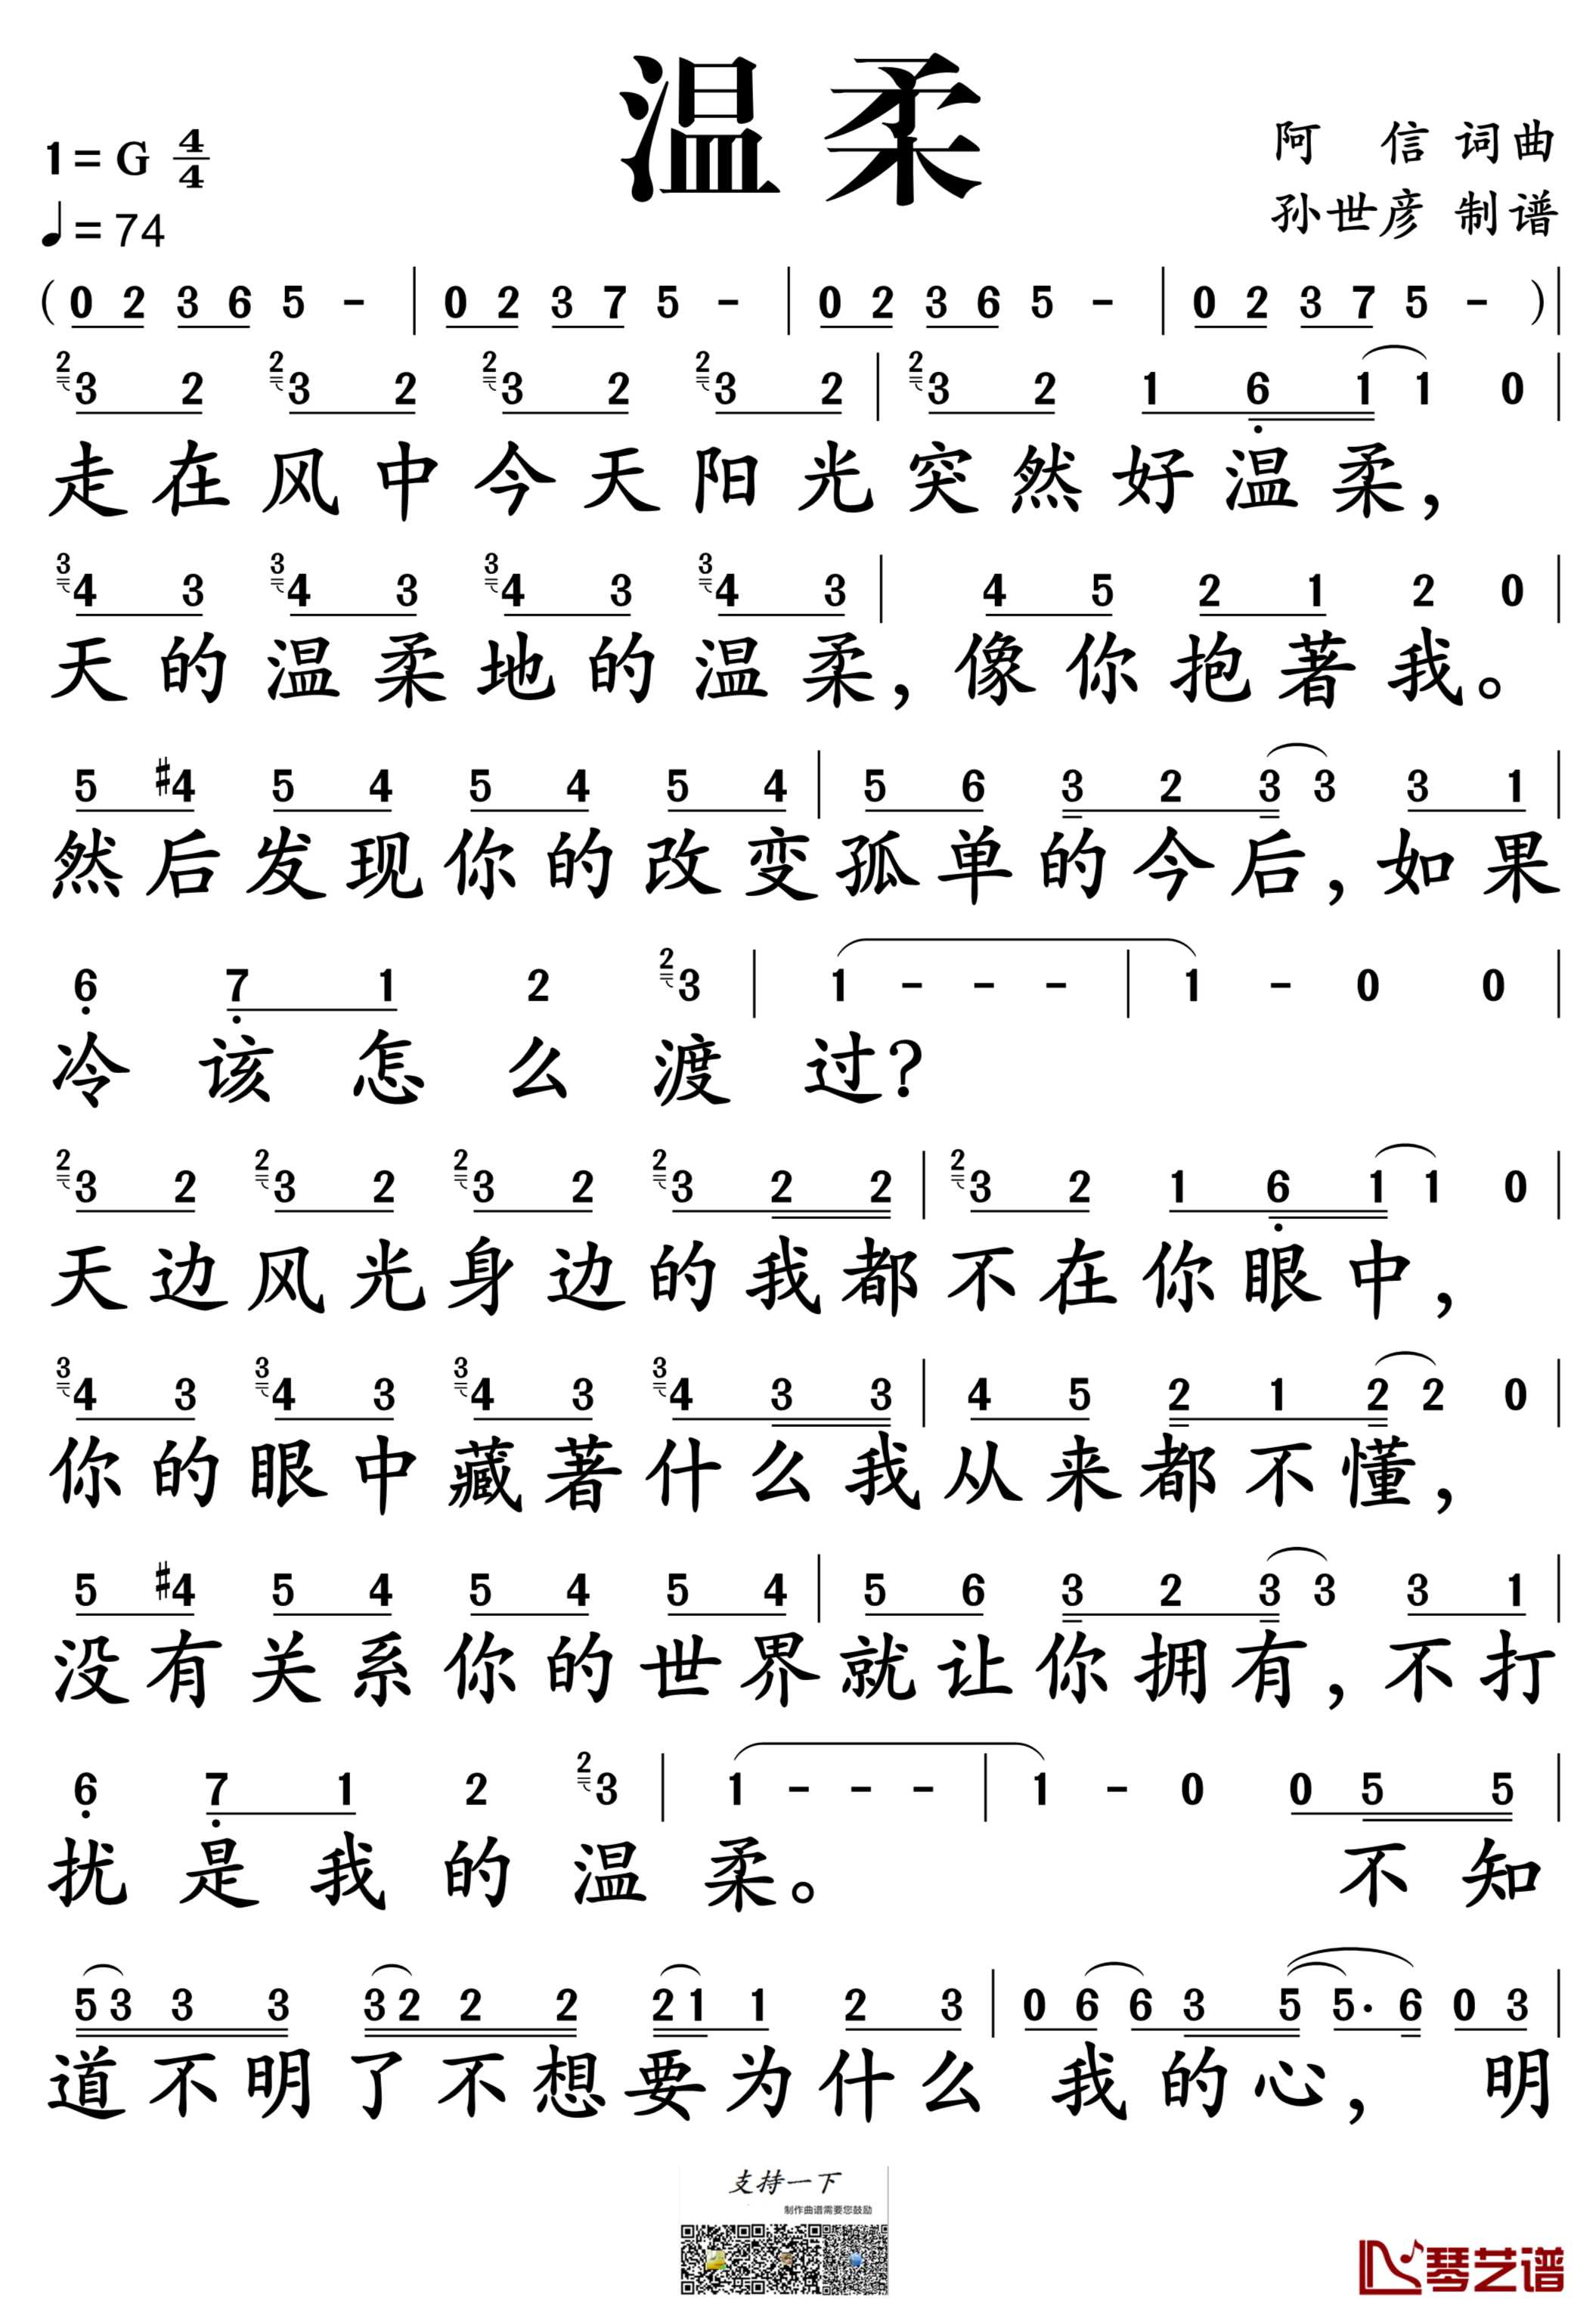 温柔
1=G 4/4
阿 信 词曲
♩=74
孙世彦 制谱
(0 2 3 6 5 - | 0 2 3 7 5 - | 0 2 3 6 5 - | 0 2 3 7 5 - )|
2 3 2 2 3 2 2 3 2 2 3 2 | 2 3 2 1 6 1 1 0 |
走在风中今天阳光突然好温柔，
3 4 3 3 4 3 3 4 3 3 4 3 | 4 5 2 1 2 0 |
天的温柔地的温柔，像你抱著我。
5 #4 5 4 5 4 5 4 | 5 6 3 2 3 3 3 1 |
然后发现你的改变孤单的今后，如果
6 7 1 2 2 3 | 1 - - - | 1 - 0 0 |
冷该怎么渡过？
2 3 2 2 3 2 2 3 2 2 3 2 2 | 2 3 2 1 6 1 1 0 |
天边风光身边的我都不在你眼中，
3 4 3 3 4 3 3 4 3 3 4 3 3 | 4 5 2 1 2 2 0 |
你的眼中藏著什么我从来都不懂，
5 #4 5 4 5 4 5 4 | 5 6 3 2 3 3 3 1 |
没有关系你的世界就让你拥有，不打
6 7 1 2 2 3 | 1 - - - | 1 - 0 0 5 5 |
扰是我的温柔。 不知
5 3 3 3 3 2 2 2 2 1 1 2 3 | 0 6 6 3 5 5· 6 0 3 |
道不明了不想要为什么 我的心， 明
支持一下
制作曲谱需要您鼓励
琴艺谱